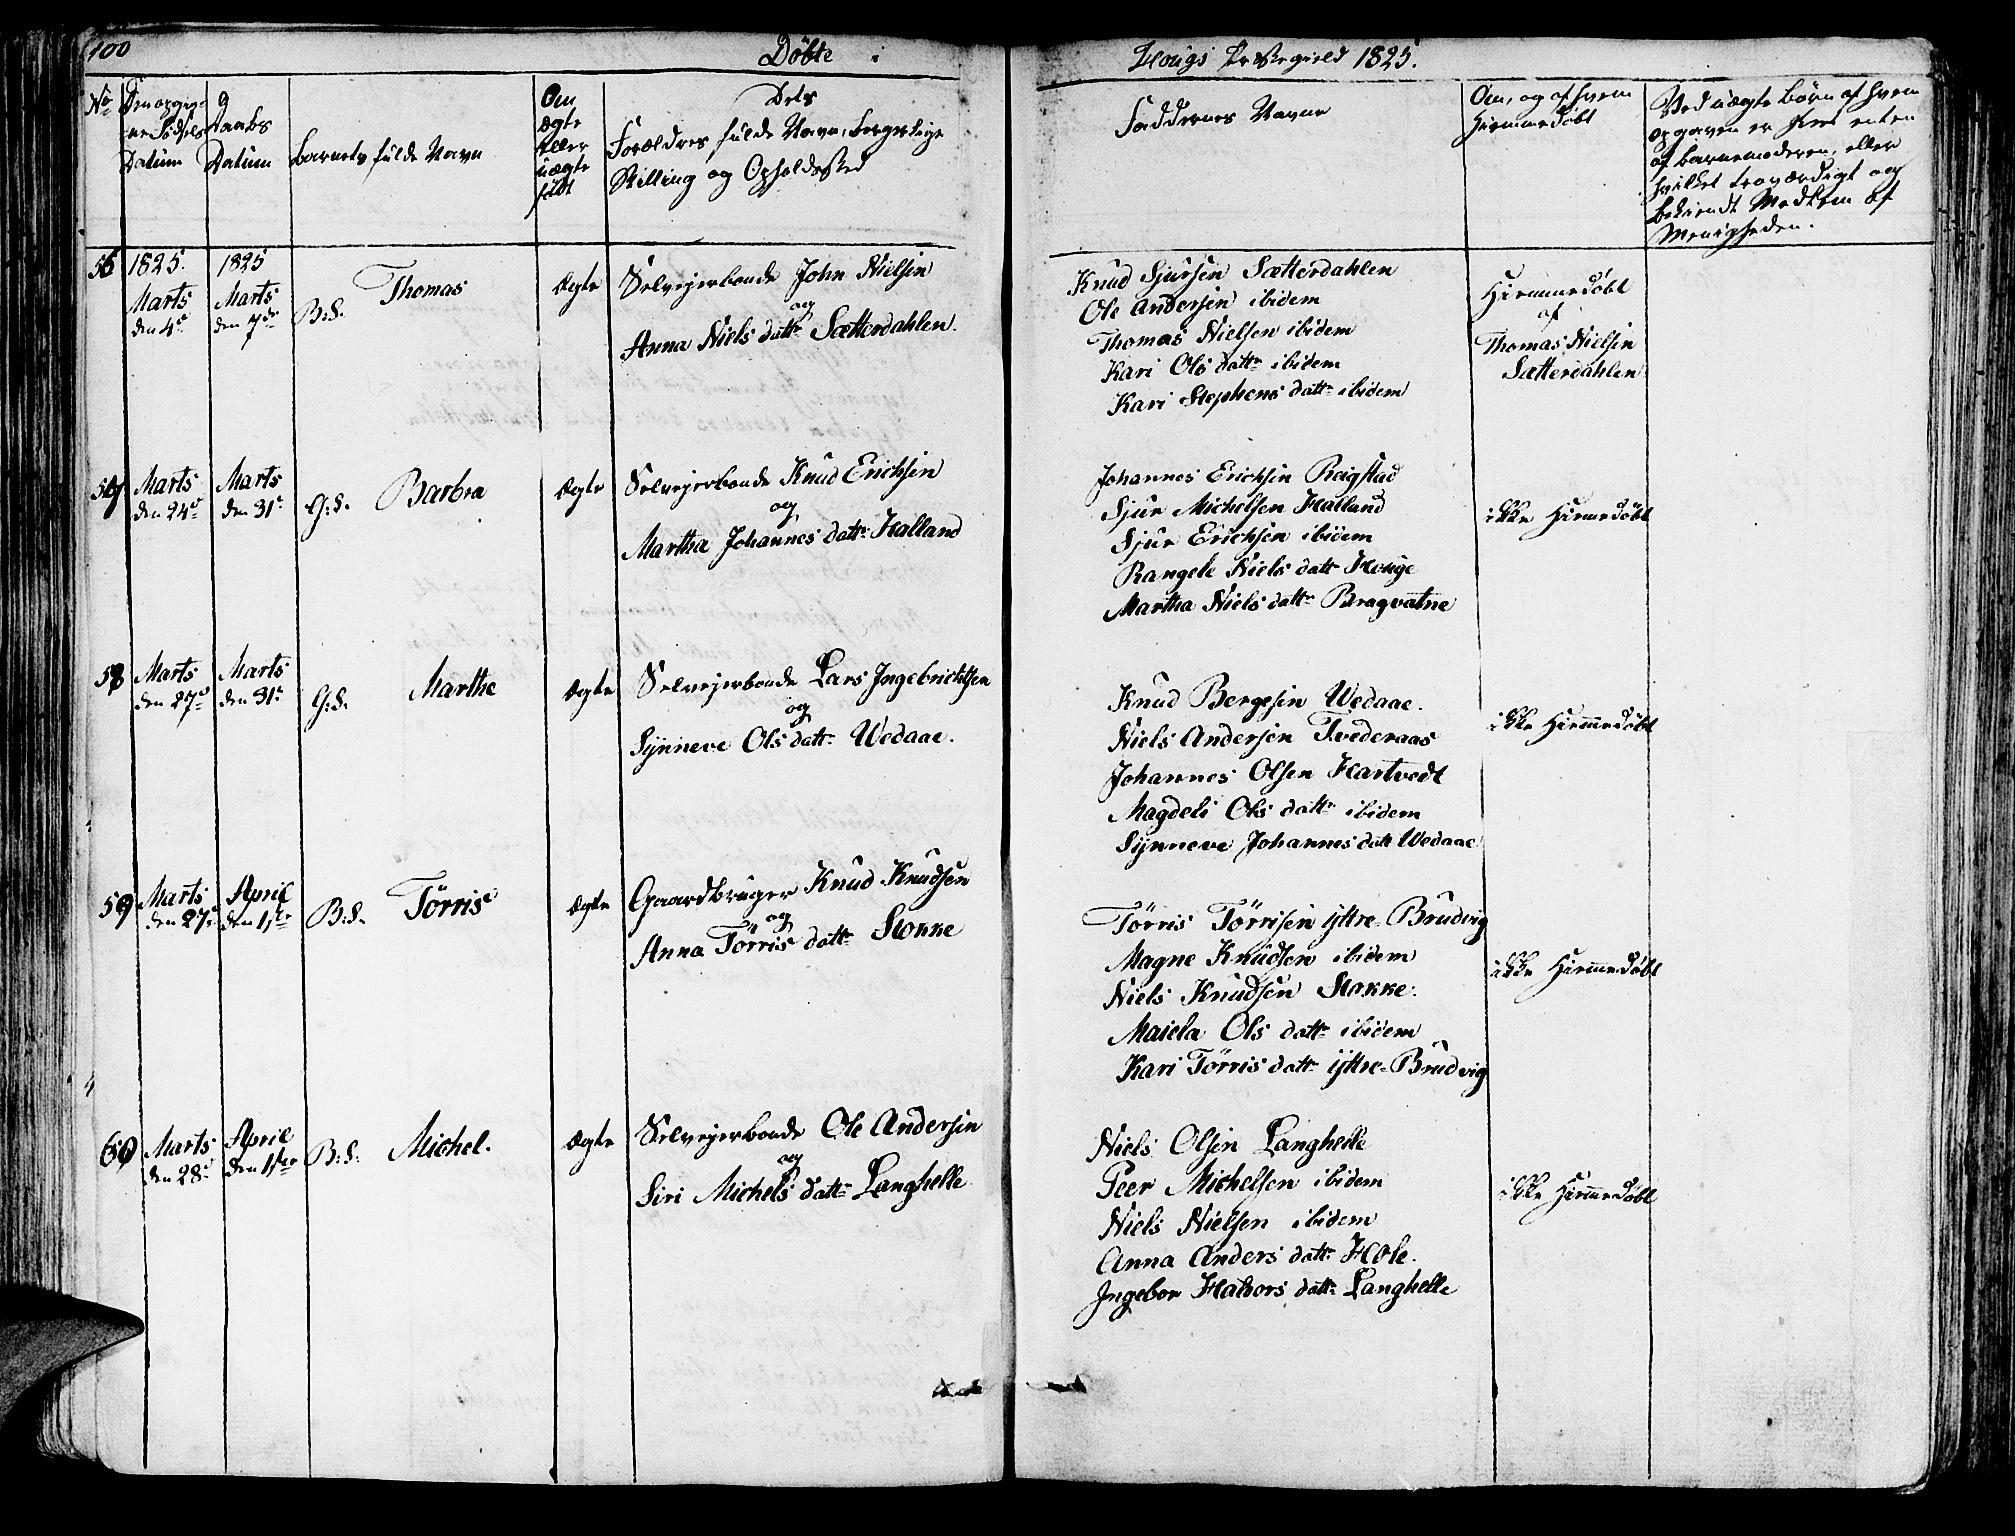 100
Döbte i
Hougs Præstegield 1825.
No
Den opgiv-
ne Födsels
Datum
Daabs
Datum
Barnets fulde Navn
Om
ægte
eller
uægte
födt
Dets
Forældres fulde Navn, borgerlige
Stilling og Opholdssted
Faddernes Navne
Om, og af hvem
Hiemmedöbt
Ved uægte Börn af hvem
opgaven er skeet enten
af Barnemoderen, eller
hvilket troværdigt og
bekiendt Medlem af
Menigheden.
56
1825.
Marts
den 4de
1825
Marts
den 7de
B:S.
Thomas
Ægte
Selvejerbonde John Nielsen
og
Anna Niels datr Sætterdahlen.
Knud Sjursen Sætterdahlen
Ole Andersen ibidem
Thomas Nielsen ibidem
Kari Ols datr ibidem
Kari Stephens datr ibidem
Hiemmedöbt
af
Thomas Nielsen
Sætterdahlen
57
Marts
den 24d
Marts
den 31t
G:S.
Barbra
Ægte
Selvejerbonde Knud Erichsen
og
Martha Johannes datr Halland
Johannes Erichsen Røgstad
Sjur Michelsen Halland
Sjur Erichsen ibidem
Rangele Niels datr Houge
Martha Niels datr Bragvatne
ikke Hiemedöbt
58
Marts
den 27d
Marts
den 31t
G:S.
Marthe
Ægte
Selvejerbonde Lars Ingebrichtsen
og
Synneve Ols datr Wedaae.
Knud Bergesen Wedaae.
Niels Andersen Tvederaas
Johannes Olsen Hartvedt
Magdeli Ols datr ibidem
Synneve Johannes datr Wedaae
ikke Hiemedöbt
59
Marts
den 27d
April
den 1ste
B:S.
Törris
Ægte
Gaardbruger Knud Knudsen
og
Anna Törris datr Stokke
Törris Törrisen yttre-Brudvig
Magne Knudsen ibidem
Niels Knudsen Stokke.
Maiela Ols datr ibidem
Kari Törris datr yttre-Brudvig
ikke Hiemedöbt
60
Marts
den 28d
April
den 1ste
B:S.
Michel.
Ægte
Selvejerbonde Ole Andersen
og
Siri Michels datr Langhelle
Niels Olsen Langhelle
Peer Michelsen ibidem
Niels Nielsen ibidem
Anna Anders datr Hole.
Ingebor Halvors datr Langhelle
ikke Hiemedöbt